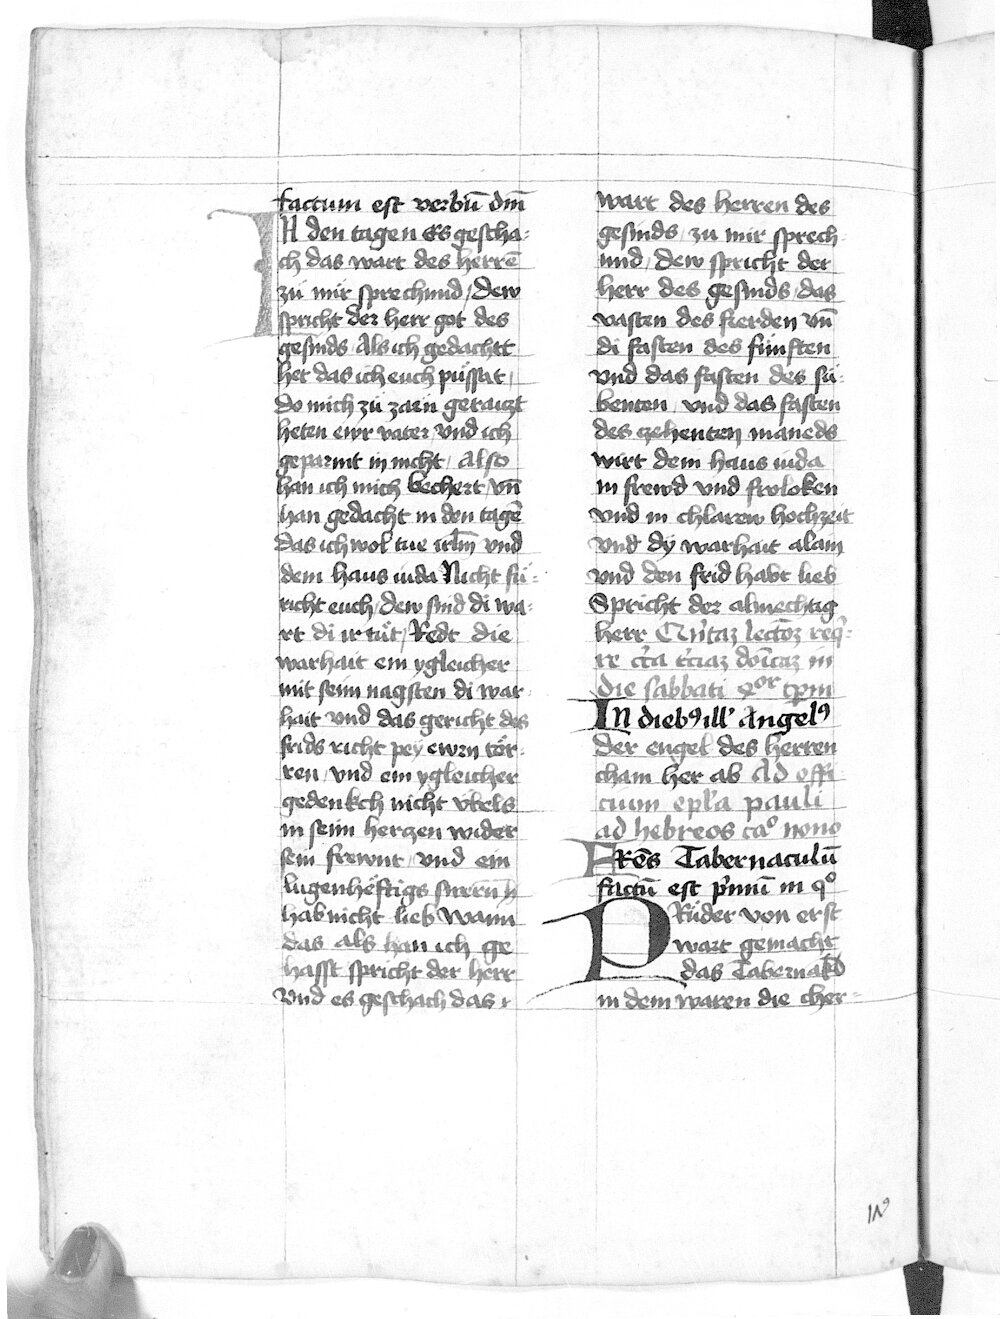 factum est verbū dm̄
IN den tagen Es gescha-
ch das wart des herrē
zu mir sprechund / dew
spricht der herr got des
gesinds Als ich gedachtt
het das ich euch pússat /
do mich zú zarn geraiczt
heten ewr vater vnd ich
geparmt in nicht / also
han ich mich bechert vn̄
han gedacht in den tagē
das ich wol tue irl̄m vnd
dem haus iuda Nicht fú-
richt euch / dew sind di wa-
rt di ir tút / Redt die
warhait ein ygleicher
mit seim nagsten di war-
hait vnd das gericht des
frids richt pey ewrn tör-
ren / vnd ein ygleicher
gedenkch nicht vbels
in seim herczen wider
sein frewnt / vnd ein
lugenhëftigs
hab nicht lieb wann
das als han ich ge
hasst spricht der herr
Vnd es geschach das
wart des herren des
gesinds / zu mir sprech-
und / dew spricht der
herr des gesinds / das
vasten des fierden vn̄
di fasten des fúnften
vnd das fasten des sú-
benten / vnd das fasten
des zehenten maneds
wirt dem haus iuda
in frewd vnd froloken
vnd in chlarew hochzeit
vnd dy warhait alain
vnd den frid habt lieb
Spricht der almechtig
herr
die sabbati
IN dieb9 ill' Angel9
der engel des herren
cham her ab Ad offi
cium epl'a pauli
ad hebreos cao nono
FRēs Tabernaculū
factū est p'mū in qo
PRúder von erst
wart gemacht
das Tabernakl
in dem waren die cher-